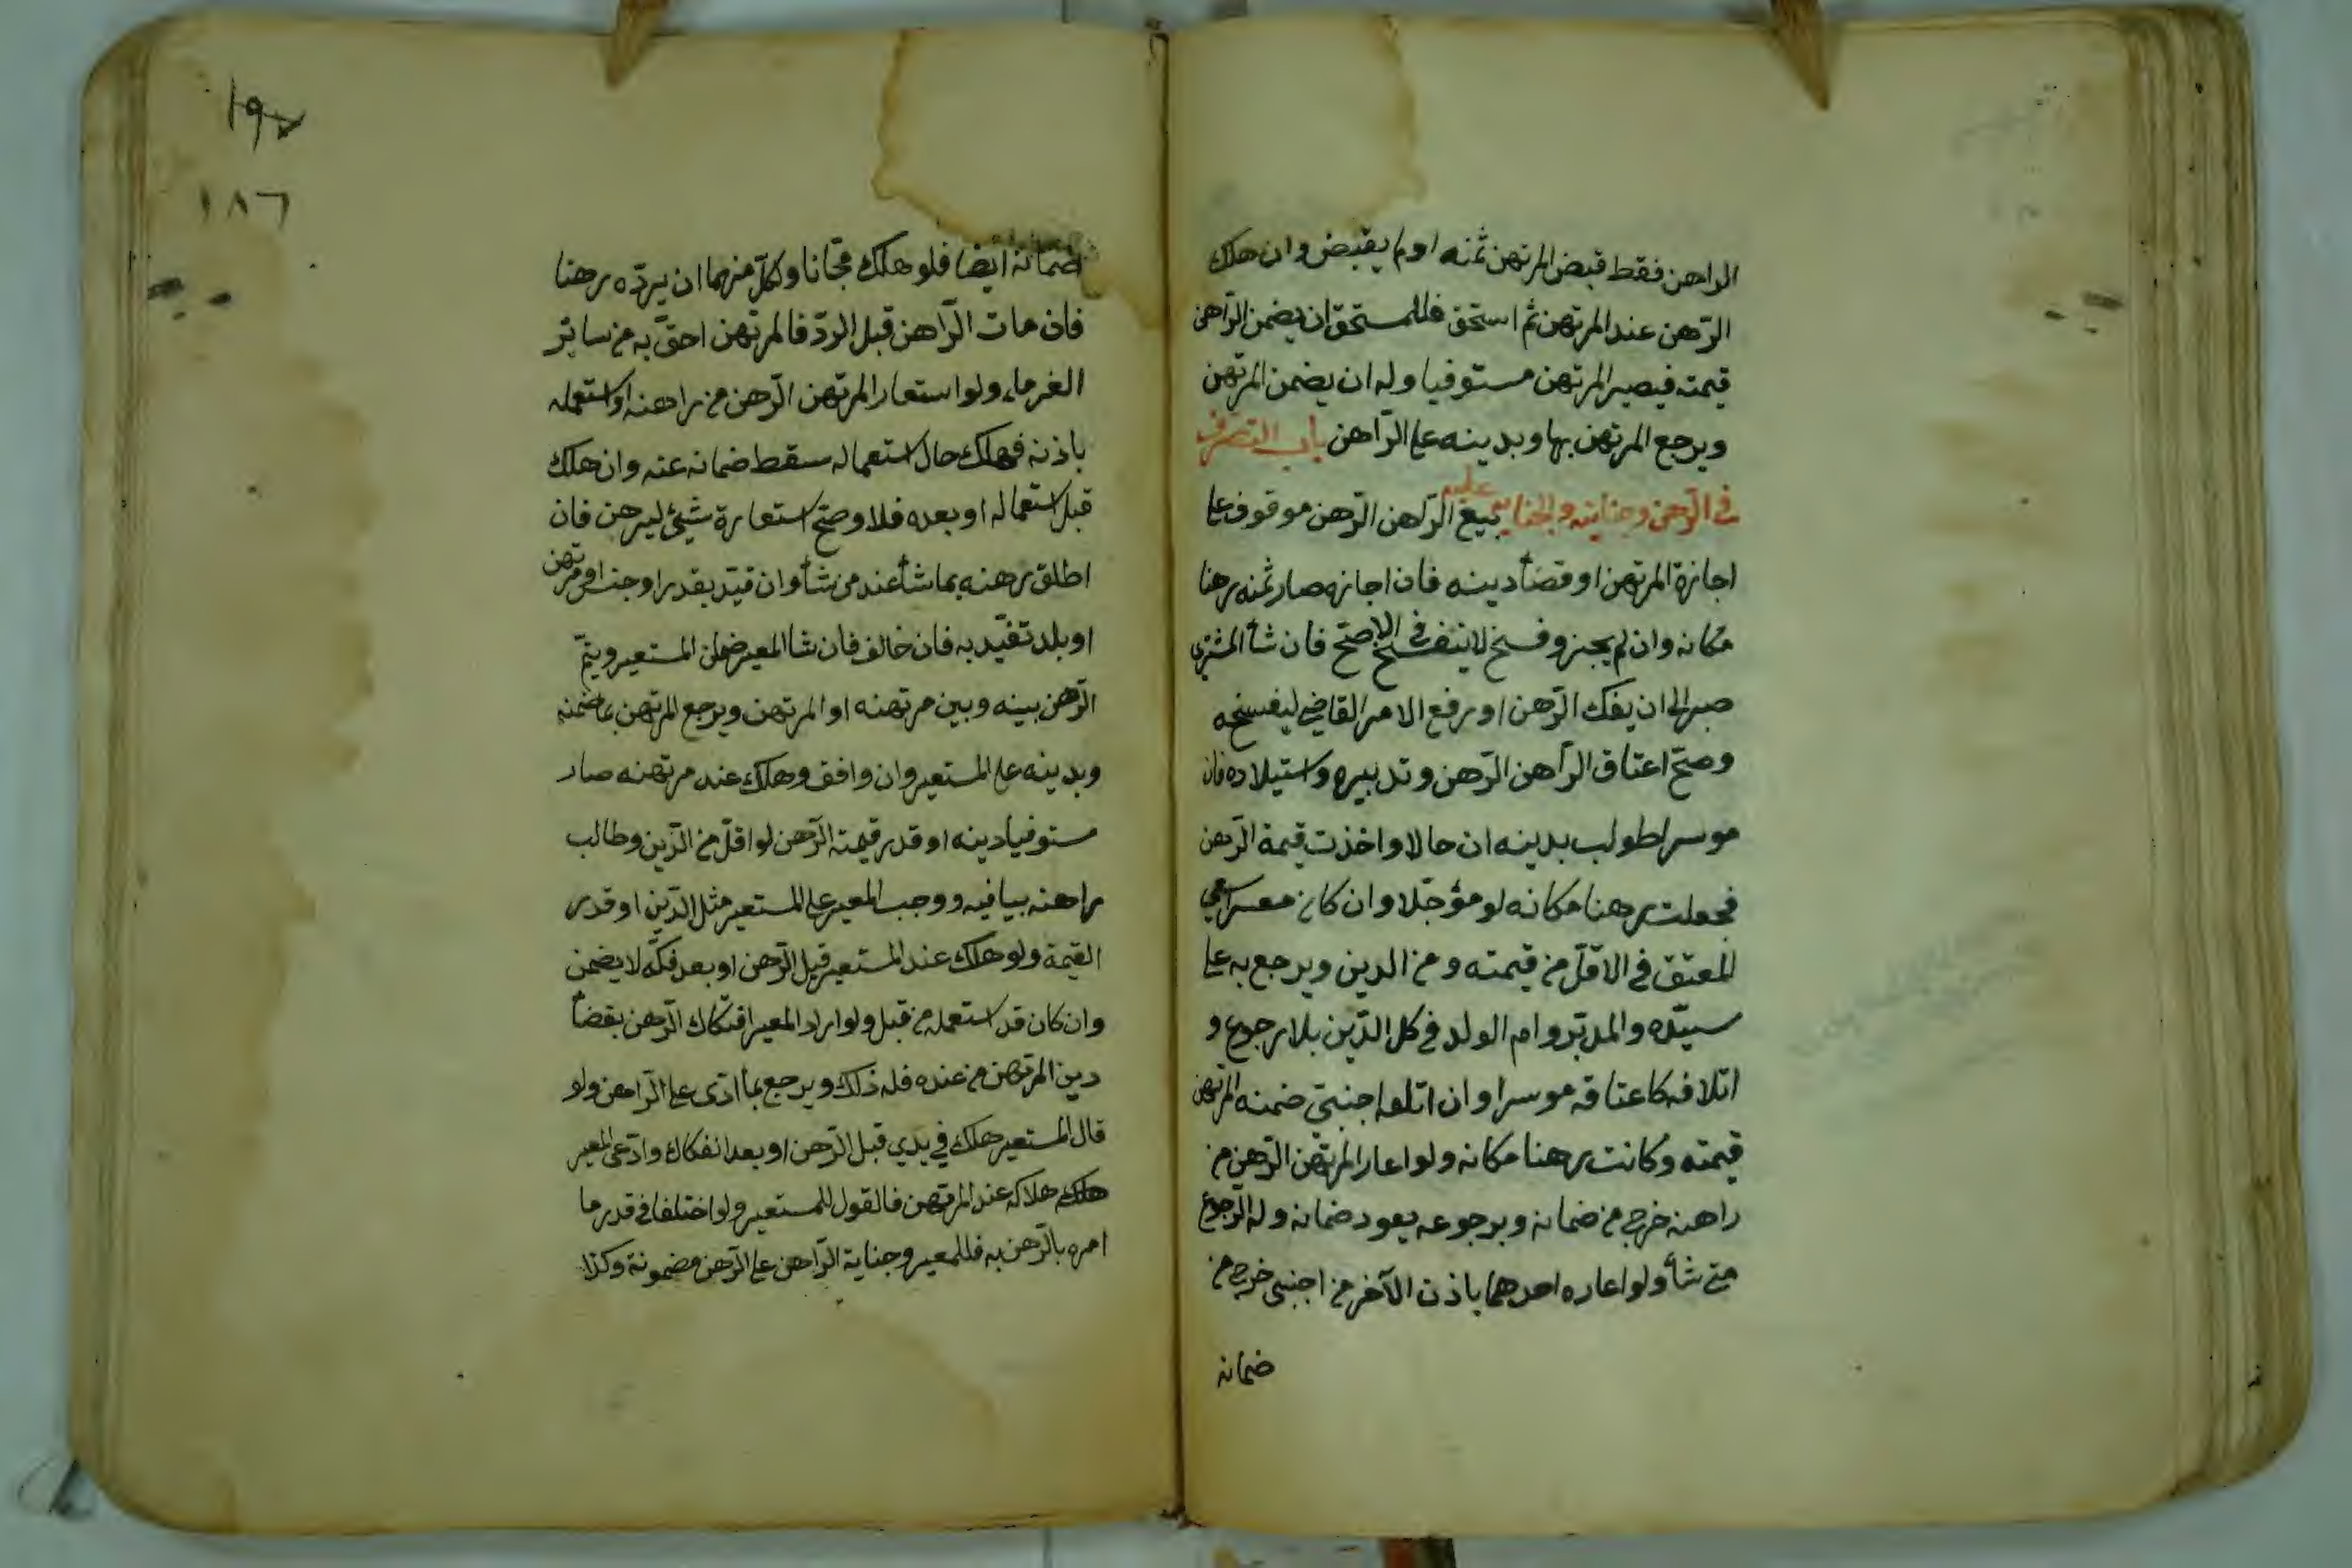 الراهن فقط قبض المرتهن ثمنه اولم يقبض وان هلك
الرّهن عند المرتهن ثم استحق فللمستحق ان يضمن الرّاهن
قيمته فيصير المرتهن مستوفيا وله ان يضمن المرتهن
ويرجع المرتهن بها وبدينه على الرّاهن باب التصرف
فى الرّهن وجنايته والجناية عليه بيع الرّاهن الرّهن موقوف على
اجازة المرتهن او قضأ دينه فان اجازه صار ثمنه رهنا
مكانه وان لم يجز وفسخ لا ينفسخ فى الاصحّ فان شأ المشترى
صبر الى ان يفك الرّهن او رفع الامر القاضى ليفسخه
وصحّ اعتاق الرّاهن الرّهن وتدبيره واستيلاده فان
موسرا طولب بدينه ان حالا واخذت قيمة الرّهن
فجعلت رهنا مكانه لو مؤجّلا وان كان معسرا سعى
المعتق فى الاقلّ من قيمته ومن الدين ويرجع به على
سيّده والمدبّر وام الولد فى كل الدّين بلا رجوع و
اتلافه كاعتاقه موسرا وان اتلفه اجنبىّ ضمنه المرتهن
قيمته وكانت رهنا مكانه ولو اعار المرتهن الرّهن من
راهنه خرج من ضمانه وبرجوعه يعود ضمانه وله الرّجوع
متى شأ ولو اعاره احدهما باذن الآخر من اجنبى خرج من
ضمانه
ضمانه ايضا فلو هلك هلك مجّانا ولكلّ منهما ان يردّه رهنا
فان مات الرّاهن قبل الردّ فالمرتهن احقّ به من سائر
الغرماء ولو استعار المرتهن الرّهن من راهنه او استعمله
باذنه فهلك حال استعماله سقط ضمانه عنه وان هلك
قبل استعماله او بعده فلا وصحّ استعارة شيئ ليرهن فان
اطلق رهنه بما شأ عند من شأ وان قيّد بقدر او جنس او مرتهن
او بلد تقيّد به فان خالف فان شا المعير ضمن المستعير ويتمّ
الرّهن بينه وبين مرتهنه او المرتهن ويرجع المرتهن بما ضمنه
وبدينه على المستعير وان وافق وهلك عند مرتهنه صار
مستوفيا دينه او قدر قيمته الرّهن لو اقلّ من الدّين وطالب
راهنه بباقيه ووجب للمعير على المستعير مثل الدّين او قدر
القيمة ولو هلك عند المستعير قبل الرّهن او بعد فكّه لا يضمن
وان كان قد استعمله من قبل ولو اراد المعير افتكاك الرّهن بقضأ
دين المرتهن من عنده فله ذلك ويرجع بما ادّى على الرّاهن ولو
قال المستعير هلك فى يدي قبل الرّهن او بعد انفكاك وادّعى المعير
هلاكه عند المرتهن فالقول للمستعير ولو اختلفا فى قدر ما
امره بالرّهن به فللمعير وجناية الرّاهن على الرّهن مضمونة وكذا
١٨٦